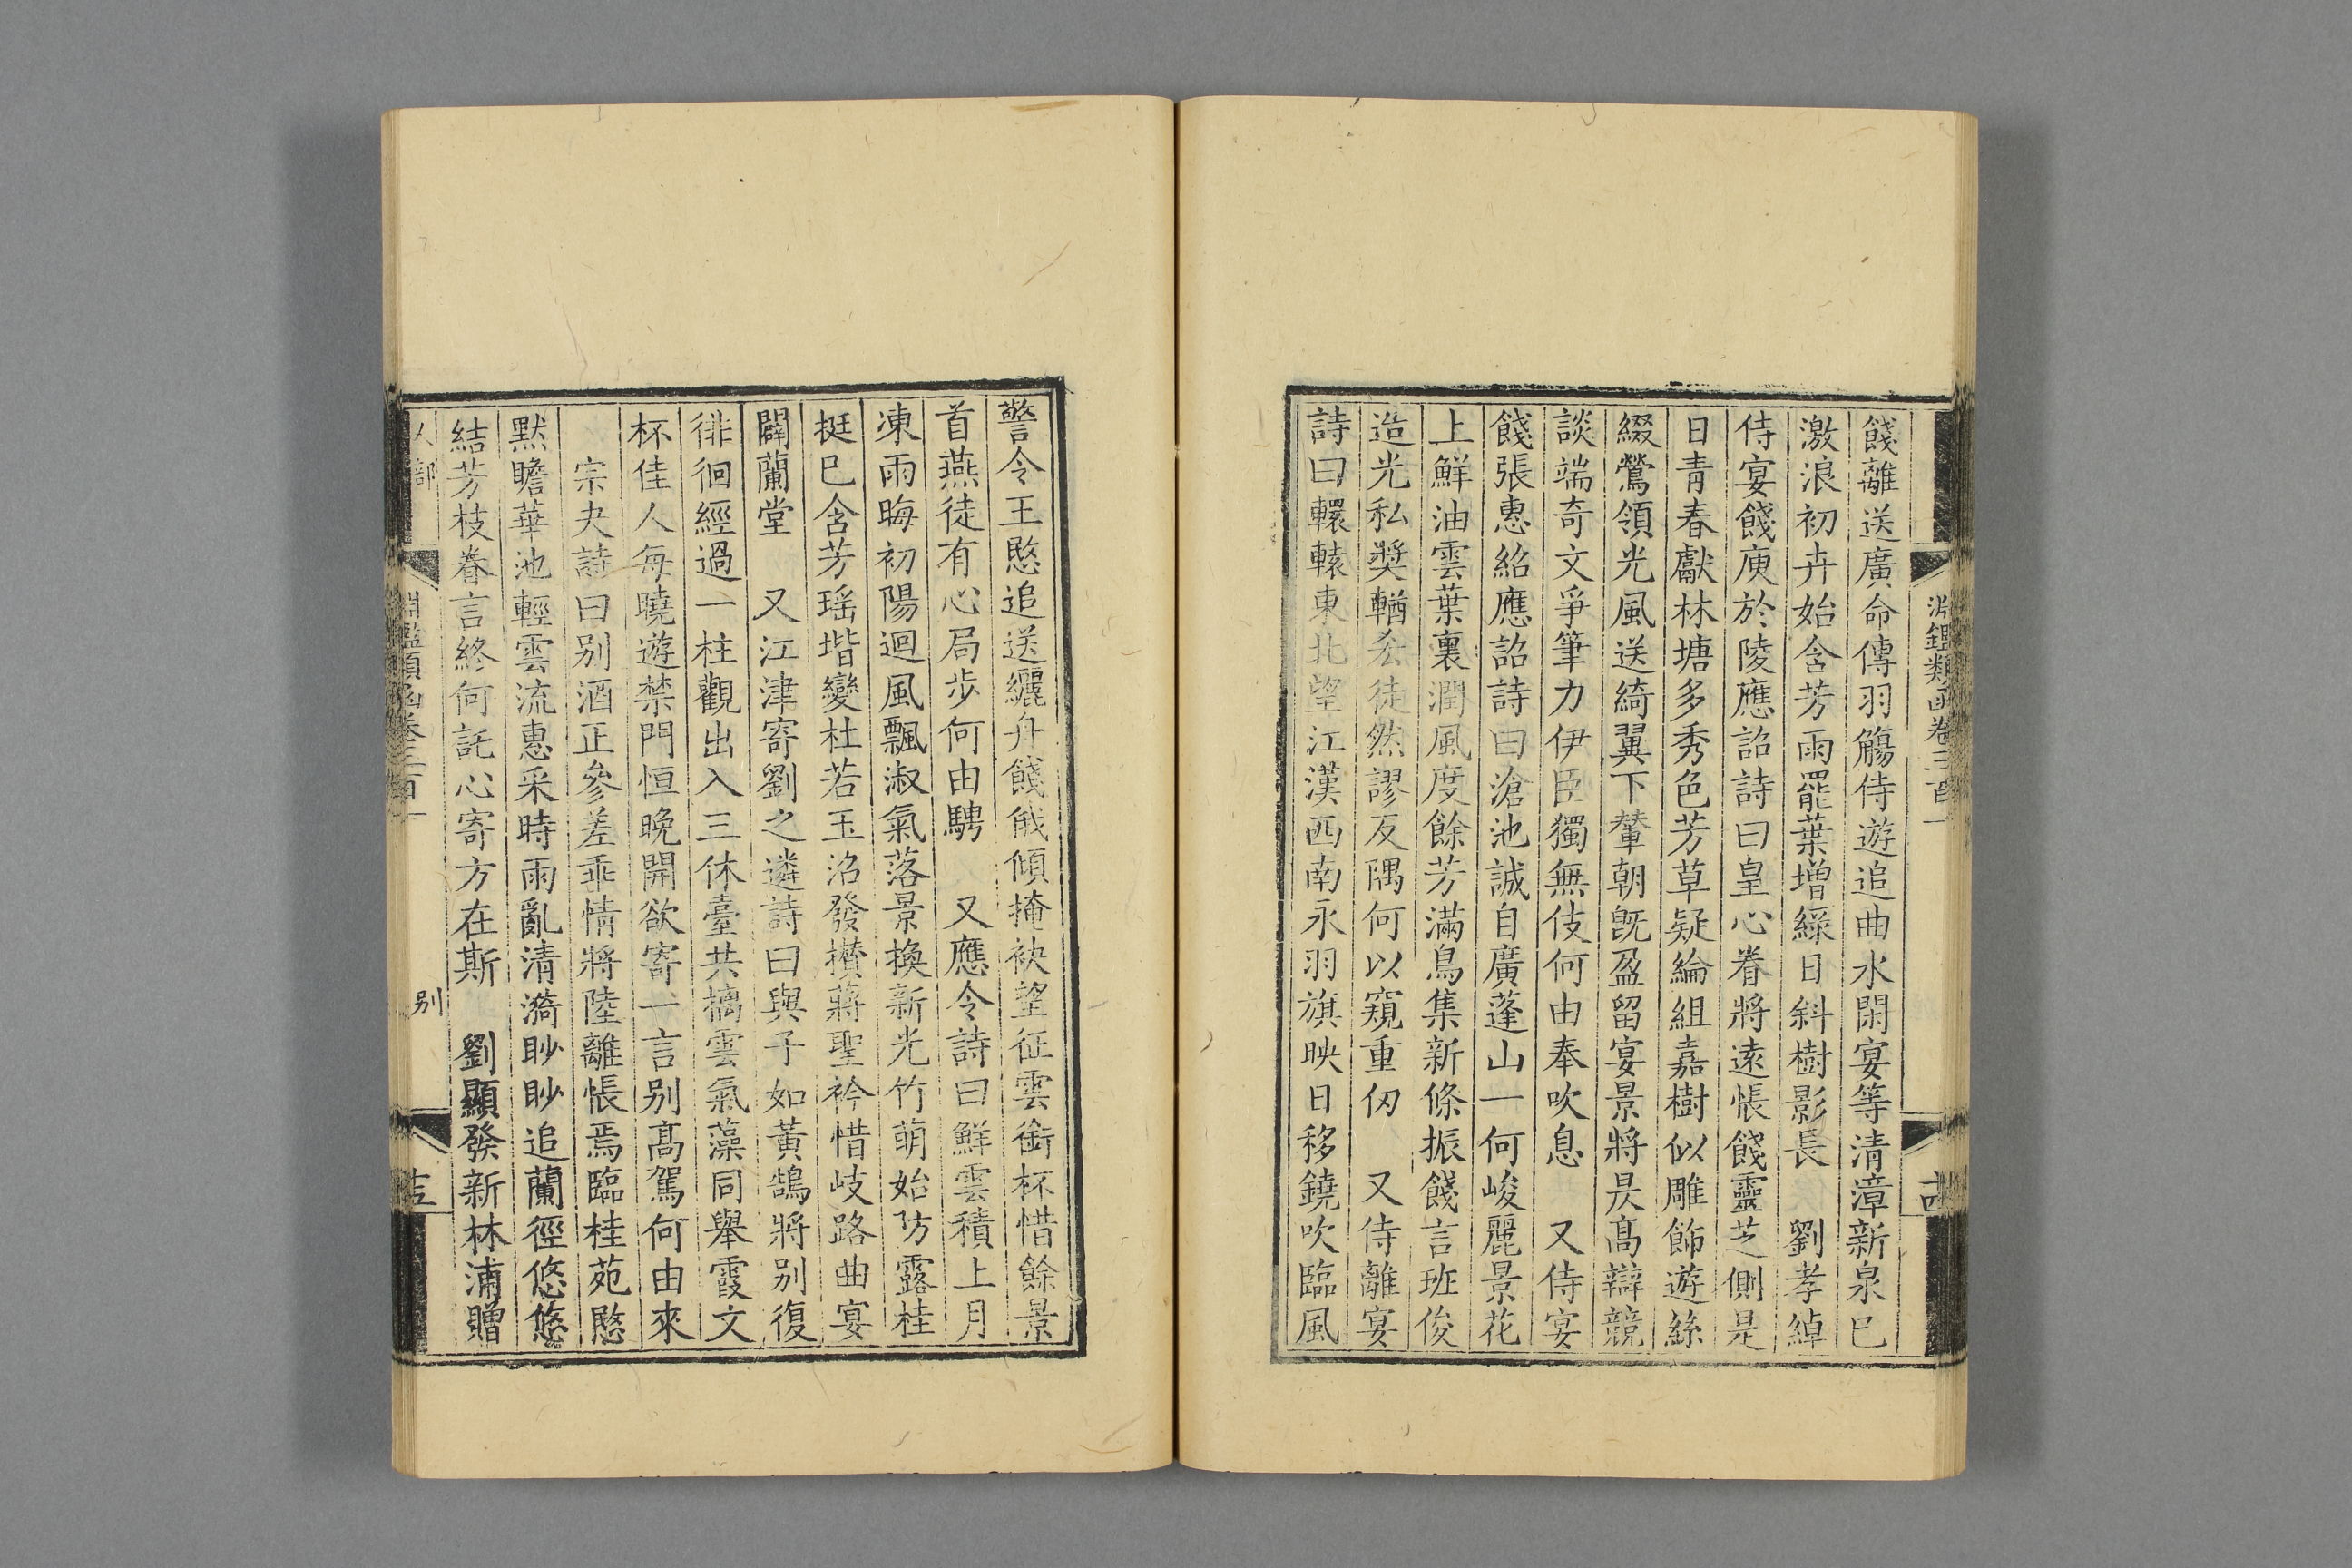 淵鑑類函卷三百一
十四
餞離送廣命傳羽觴侍遊追曲水開宴等清漳新泉巳
激浪初卉始含芳雨罷葉增綠日斜樹影長　劉孝綽
侍宴餞庾於陵應詔詩曰皇心眷將遠悵餞靈芝側是
日青春獻林塘多秀色芳草疑綸組嘉樹似雕飾遊絲
綴鶯領光風送綺翼下輦朝旣盈留宴景將昃高辯競
談端奇文爭筆力伊臣獨無伎何由奉吹息　又侍宴
餞張惠紹應詔詩曰滄池誠自廣蓬山一何峻麗景花
上鮮油雲葉裏潤風度餘芳滿鳥集新條振餞言班俊
造光私獎輶玄徒然謬反隅何以窺重仞　又侍離宴
詩曰轘轅東北望江漢西南永羽旗映日移鐃吹臨風
警令王愍追送纚舟餞觥傾掩袂望征雲銜杯惜餘景
首燕徒有心局步何由騁　又應令詩曰鮮雲積上月
凍雨晦初陽迴風飄淑氣落景換新光竹萌始防露桂
挺巳含芳瑤堦變杜若玉沼發攢蔣聖衿惜岐路曲宴
闢蘭堂　又江津寄劉之遴詩曰與子如黃鵠將别復
徘徊經過一柱觀出入三休臺共摛雲氣藻同舉霞文
杯佳人每曉遊禁門恒晚開欲寄一言别高駕何由來
宗夬詩曰别酒正參差乖情將陸離悵焉臨桂苑愍
默瞻華池輕雲流惠采時雨亂清漪眇眇追蘭徑悠悠
結芳枝眷言終何託心寄方在斯　劉顯發新林浦贈
人部
淵鑑類函卷三百一
别
十五